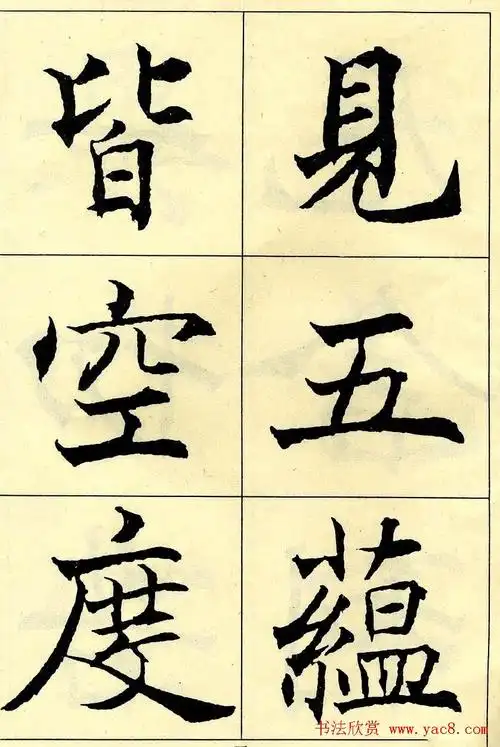 見五蘊
皆空度
书法欣赏 www.yac8.com